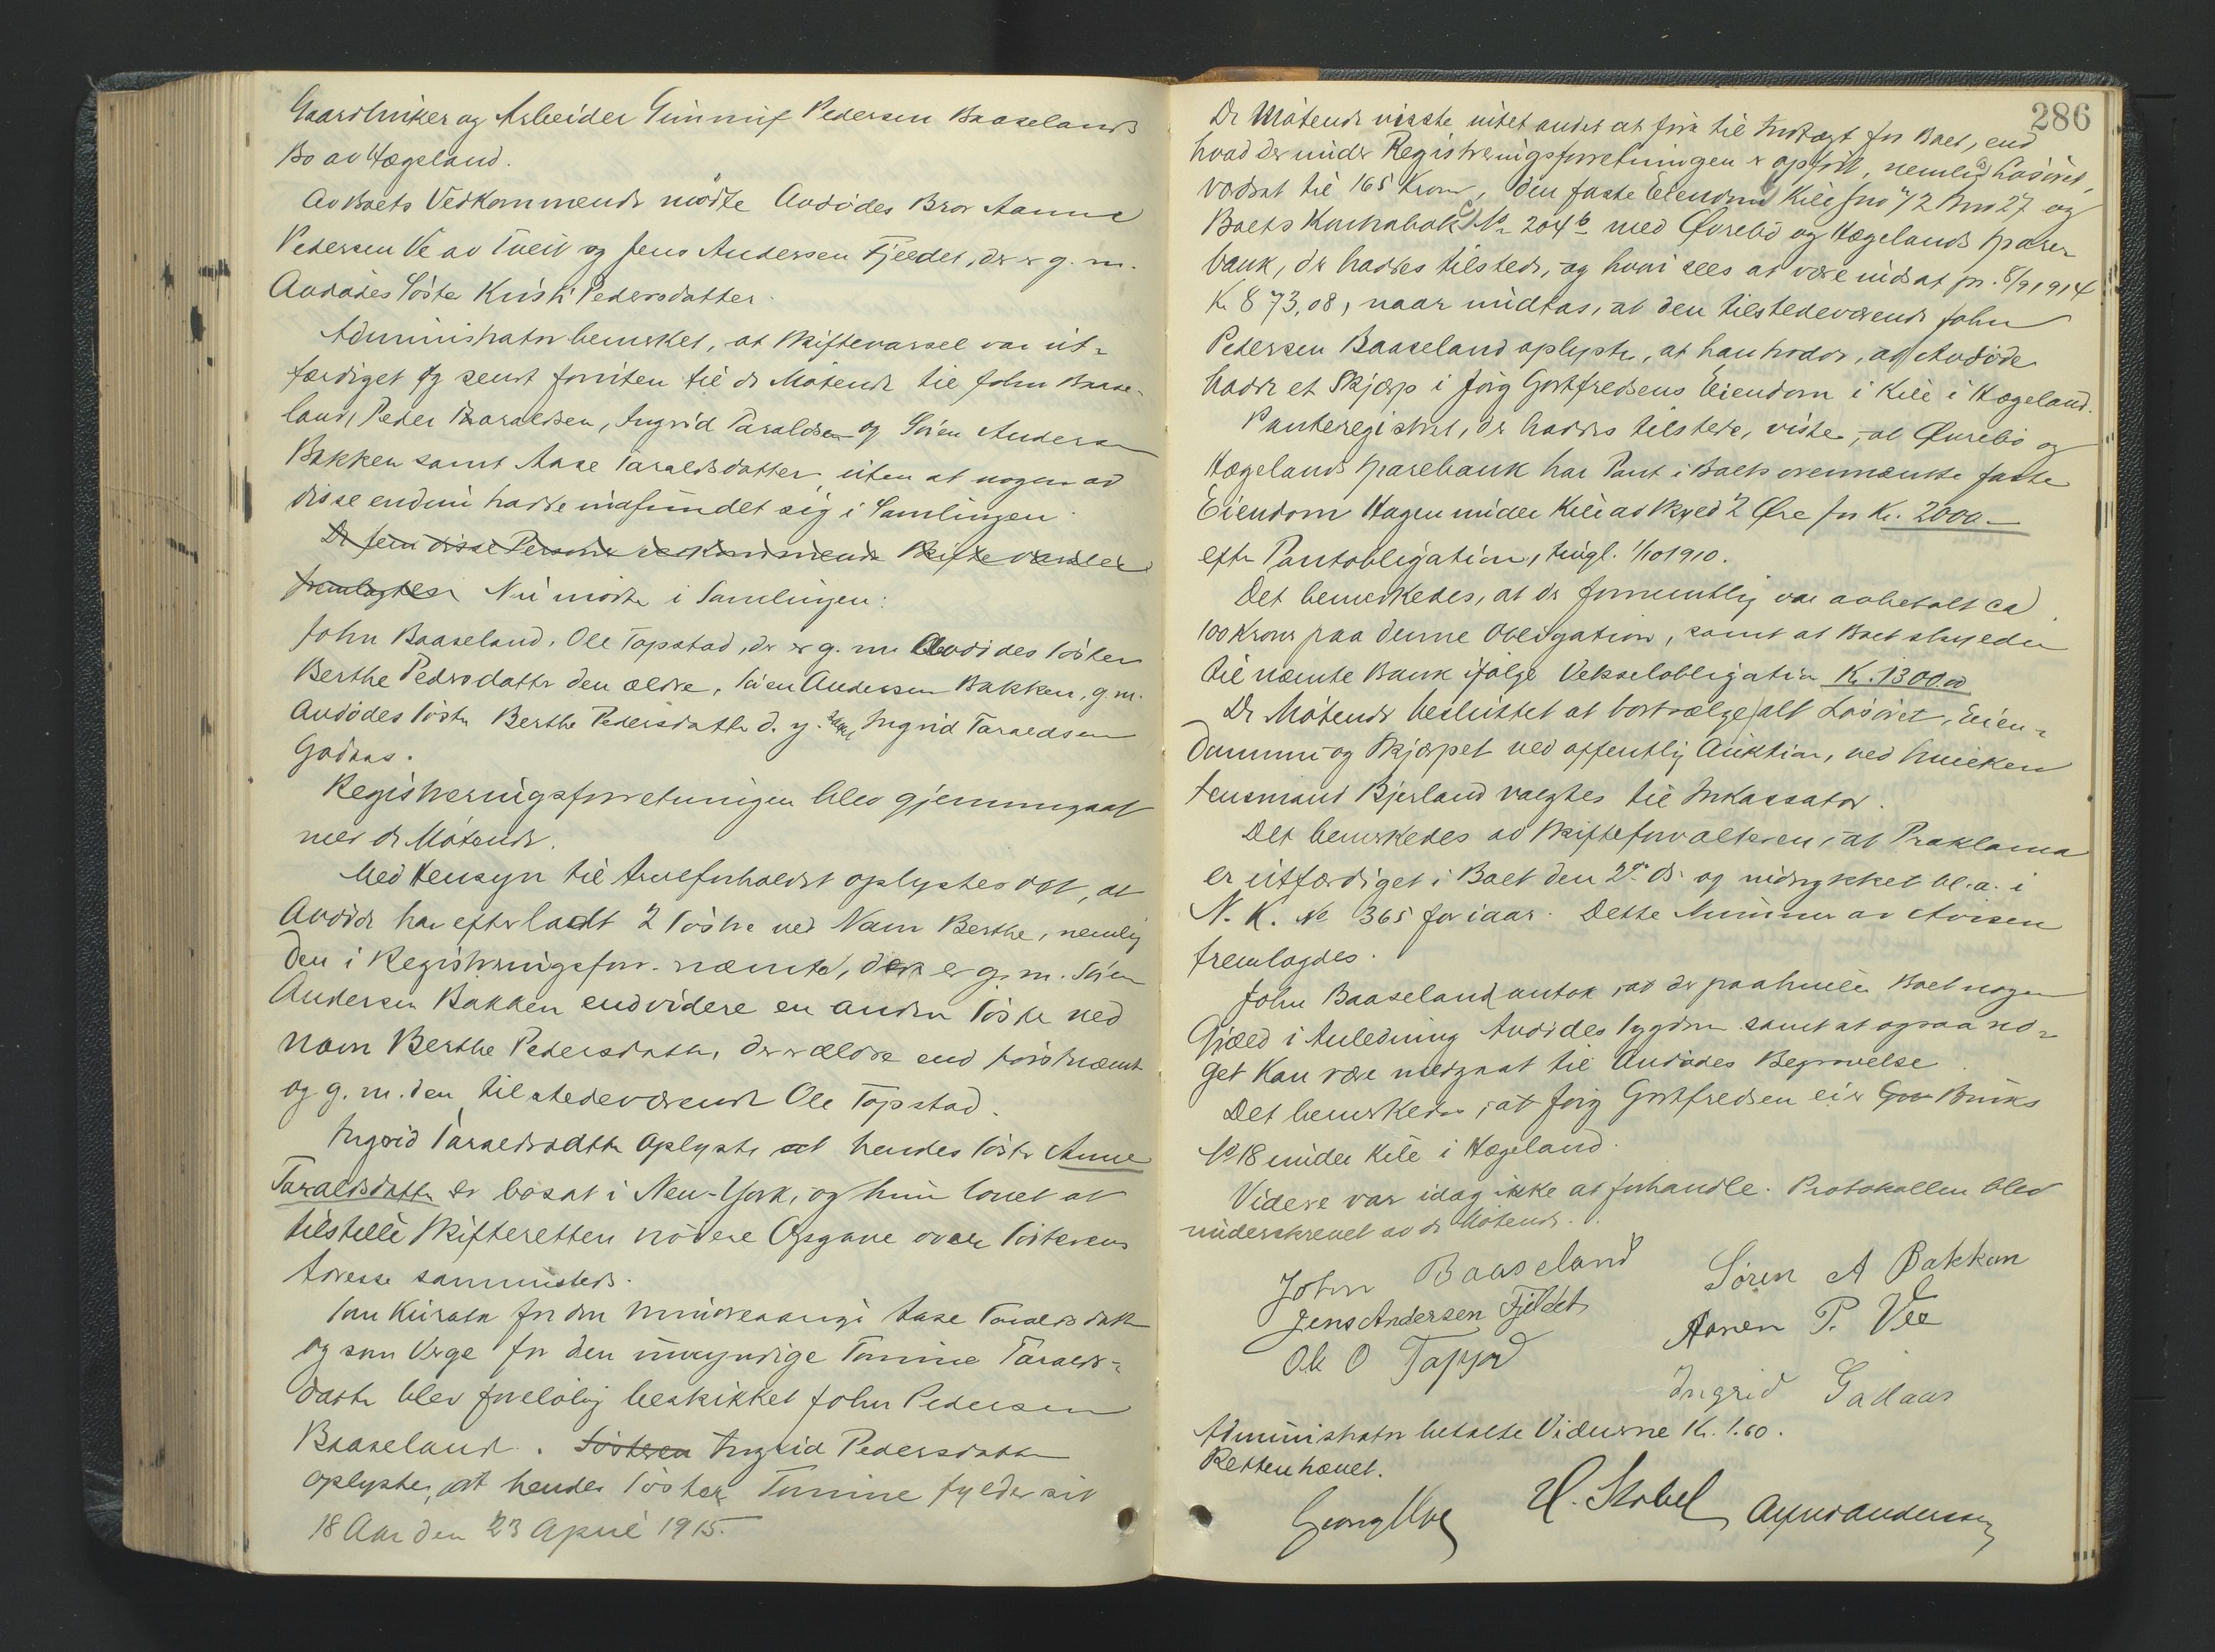 Gaardbruker og Arbeider Gunnuf Pedersen Baaselands
Bo av Hægeland.
Av Boets Vedkommende mødte Avdødes Bror Aanne
Pedersen Ve av Tveit og Jens Andersen Fjeldet, der er g. m.
Avdødes Søster Kristi Pedersdatter.
Administrator bemerket, at Skiftevarsel var ut-
færdiget og sendt foruten til de Møtende til John Baase-
land, Peder Taraldsen, Ingrid Taraldsen og Søren Andersen
Bakken samt Aase Taraldsdatter, uten at nogen av
disse endnu hadde indfundet sig i Samlingen.
De fem disse Personer vedkommende Skiftevarsler
fremlagdes. Nu mødte i Samlingen:
John Baaseland, Ole Topstad, der er g. m. Avdødes Søster
Berthe Pedersdatter den ældre, Søren Andersen Bakken, g. m.
Avdødes Søster Berthe Pedersdatter d. y. Ingrid Taraldsen
Gadaas.
Registreringsforretningen blev gjennemgaat
med de Møtende.
Med Hensyn til Arveforholdet oplystes det, at
Avdøde har efterladt 2 Søstre ved Navn Berthe, nemlig
den i Registreringsforr. nævnte, der er g. m. Søren
Andersen Bakken endvidere en anden Søster ved
Navn Berthe Pedersdatter, der er ældre end førstnævnte
og g. m. den tilstedeværende Ole Topstad.
Ingrid Taraldsdatter oplyste at hendes Søster Anne
Taraldsdatter er bosat i New-York, og hun lovet at
tilstille Skifteretten nødere Opgave over Søsterens
Adresse sammesteds.
Som Kurator for den mindreaarige Aase Taraldsdatter
og som Verge for den umyndige Tomine Taralds-
datter blev foreløbig beskikket John Pedersen
Baaseland. Søsteren Ingrid Pedersdatter
oplyste, at hendes Søster Tomine fylder sit
18 Aar den 23 April 1915.
286
De Møtende visste intet andet at føre til Indtægt for Boet, end
hvad der under Registreringsforretningen er opført, nemlig a) Løsøret,
værdsat til 165 Kroner, den faste Eiendom b) Kile gno 72 bno 27 og
Boets Kontrabok c) No 204 b med Øvrebø og Hægelands Spare-
bank, der haddes tilstede, og hvori sees at være indsat pr. 8/9 1914
Kr 873,08, naar undtas, at den tilstedeværende John
Pedersen Baaseland oplyste, at han trodde, at Avdøde
hadde et Skjærp i Jørg Gottfredsens Eiendom i Kile i Hægeland.
Panteregistret, der haddes tilstede, viste, at Øvrebø og
Hægelands Sparebank har Pant i Boets ovennævnte faste
Eiendom Hagen under Kile av Skyld 2 Øre for Kr. 2000.—
efter Pantobligation, tingl. 1/10 1910.
Det bemerkedes, at der formentlig var avbetalt ca
100 Kroner paa denne Obligation, samt at Boet skylder
til nævnte Bank ifølge Vekselobligation Kr. 1300.00
De Møtende besluttet at bortsælge alt Løsøret, Eien-
dommen og Skjærpet ved offentlig Auktion, ved hvilken
Lensmand Bjerland valgtes til Inkassator.
Det bemerkedes av Skifteforvalteren, at Proklama
er utfærdiget i Boet den 2. ds. og indrykket bl. a. i
N. K. No 365 for iaar. Dette Nummer av Avisen
fremlagdes.
John Baaseland antok, at der paahviler Boet nogen
Gjæld i Anledning Avdødes Sygdom samt at ogsaa no-
get kan være medgaat til Avdødes Begravelse.
Det bemerkedes, at Jørg Gottfredsen eier Bruks
No 18 under Kile i Hægeland.
Videre var idag ikke at forhandle. Protokollen blev
underskrevet av de Møtende.
John Baaseland Søren A Bakken
Jens Andersen Fjeldet Aanen P. Vee
Ole O Tapjod
Ingrid Gadaas
Administrator betalte Vidnerne Kr. 1.60.
Retten hævet.
H. Skobel